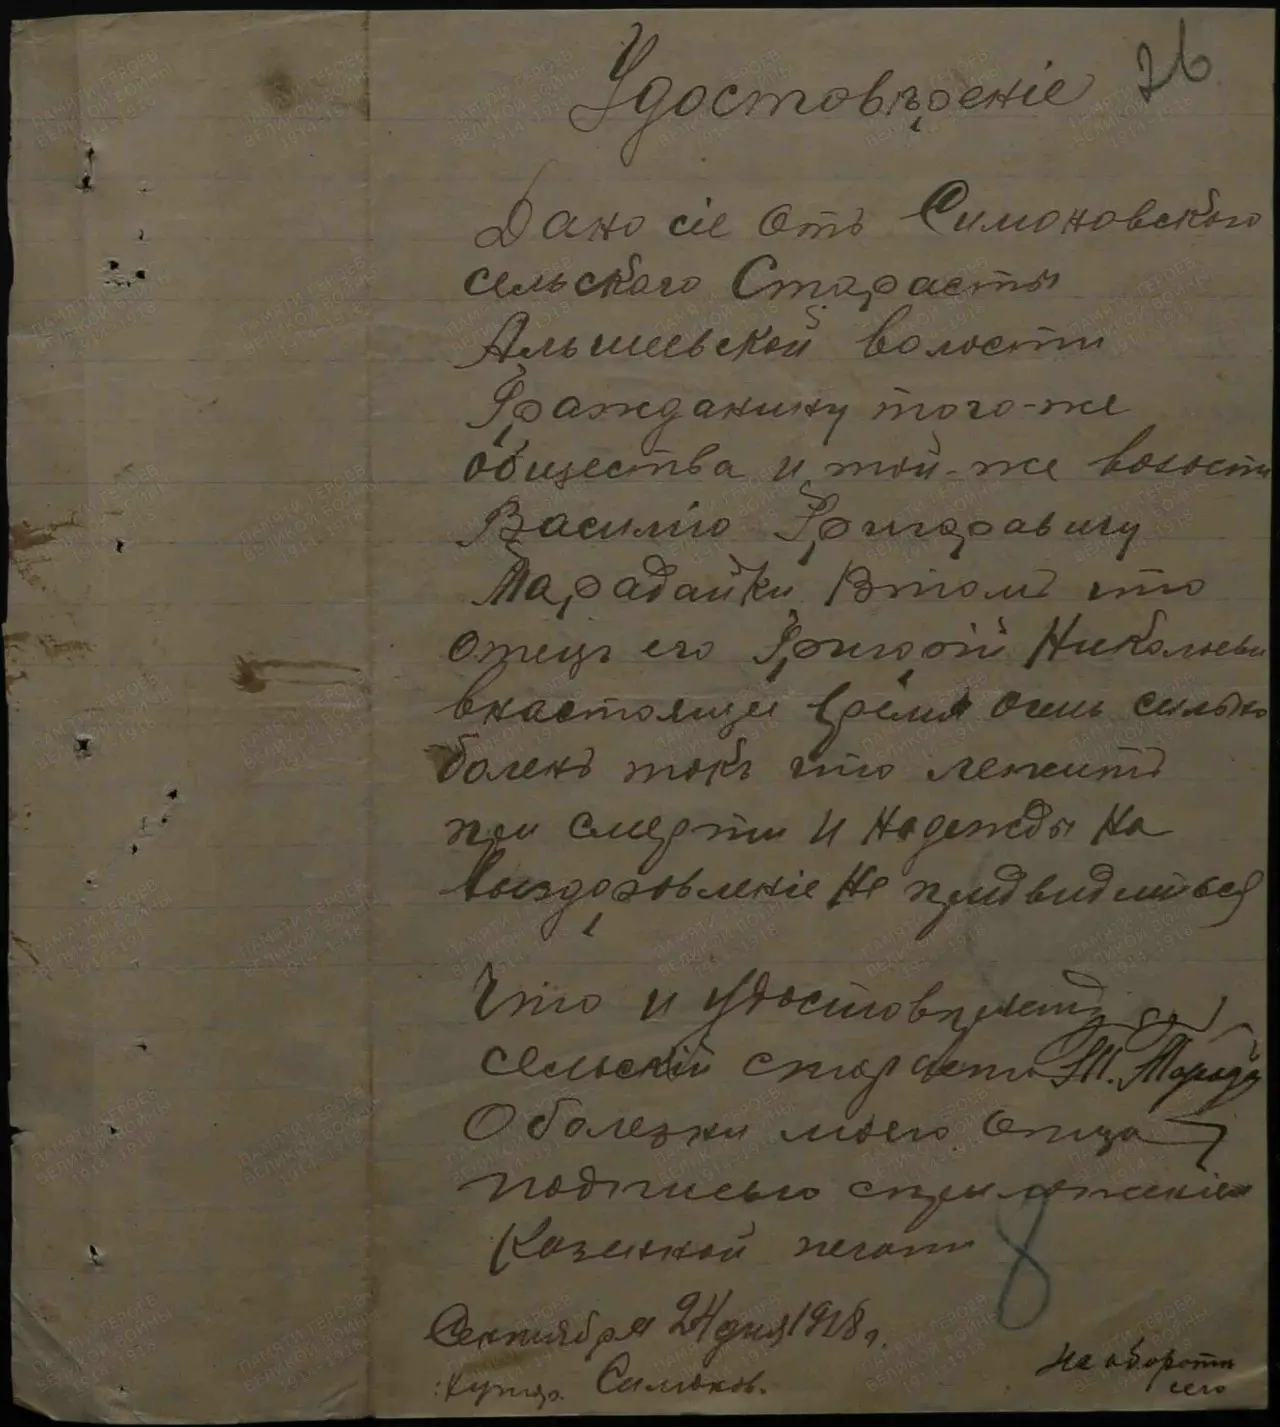 26
Удостовѣреніе
Дано сіе Отъ Симоновскаго
сельскаго Старасты
Алышевской воласти
Гражданину того-же
общества и той-же воласти
Василію Григоравичу
Марадайки Втомъ что
отецъ его Григорій Николаевъ
внастоящее время очень сильно
боленъ такъ что лежитъ
при смерти И надежды на
выздоровленіе Не придвидиться
Что и удостовѣряетъ
сельскій стараста
О болезни моего отца
подписью сприложеніем
Казенной печати
8
Сентября 24 дня 1918 г.
Симонов.
На обороти
сего